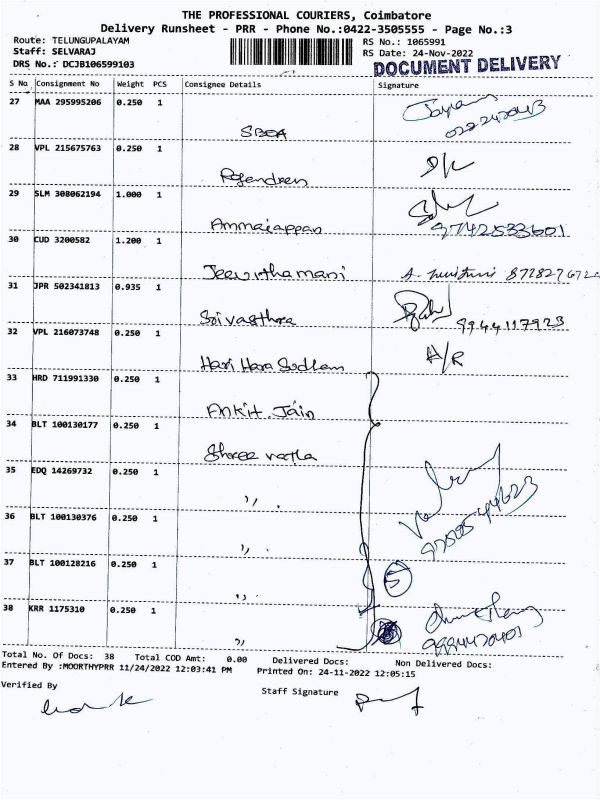 THE PROFESSIONAL COURIERS, Coimbatore
Delivery Runsheet - PRR - Phone No.:0422-3505555 - Page No.:3
Route: TELUNGUPALAYAM
RS No.: 1065991
Staff: SELVARAJ
RS Date: 24-Nov-2022
DRS No.: DCJB106599103
DOCUMENT DELIVERY
S No Consignment No Weight PCS Consignee Details Signature
27 MAA 295995206 0.250 1
SBOA
28 VPL 215675763 0.250 1
Rajendran
29 SLM 308062194 1.000 1
Ammaiappan
9742533601
30 CUD 3200582 1.200 1
Jeevithamani
31 JPR 502341813 0.935 1
Srivasthra 9944117923
32 VPL 216073748 0.250 1 A/R
Hari Hara Sudham
33 HRD 711991330 0.250 1
Ankit Jain
34 BLT 100130177 0.250 1
Shree vatla
35 EDQ 14269732 0.250 1
,,
36 BLT 100130376 0.250 1
,,
37 BLT 100128216 0.250 1
5
,,
38 KRR 1175310 0.250 1
9994420401
,,
Total No. Of Docs: 38 Total COD Amt: 0.00 Delivered Docs: Non Delivered Docs:
Entered By :MOORTHYPRR 11/24/2022 12:03:41 PM Printed On: 24-11-2022 12:05:15
Verified By
Staff Signature